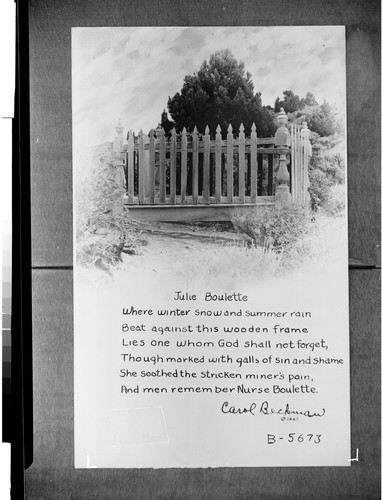 Julie Boulette
Where winter snow and summer rain
Beat against this wooden frame
Lies one whom God shall not forget,
Though marked with galls of sin and shame
She soothed the stricken miner's pain,
And men remember Nurse Boulette.
Carol Beckman
B-5673